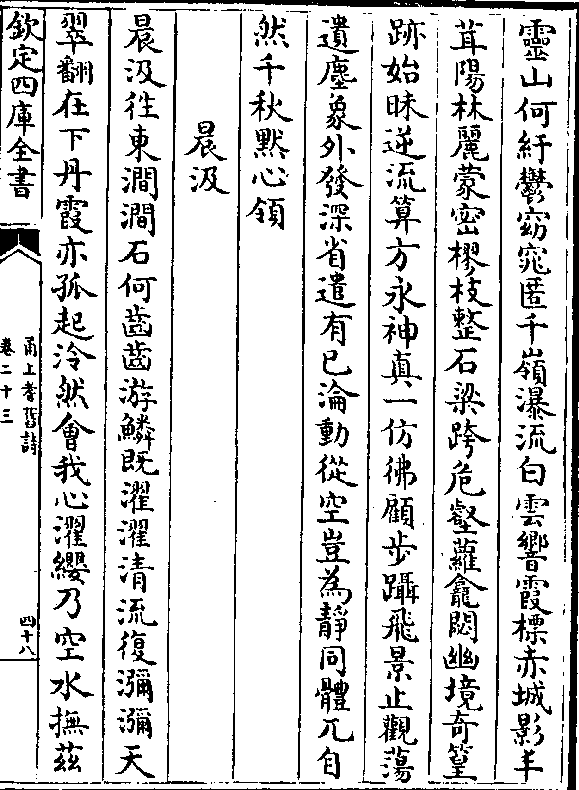 靈山何紆鬱窈窕匿千嶺瀑流白雲響霞標赤城影丰
茸陽林麗蒙密樛枝整石梁跨危壑蘿龕閟幽境奇篁
跡始昧逆流算方永神真一仿彿顧步躡飛景止觀蕩
遺塵象外發深省遣有已淪動從空豈為靜同體兀自
然千秋黙心領
晨汲
晨汲徃東澗澗石何齒齒游鱗既濯濯清流復瀰瀰天
翠翻在下丹霞亦孤起泠然會我心濯纓乃空水撫茲
欽定四庫全書
甬上耆舊詩
卷二十三
四十八